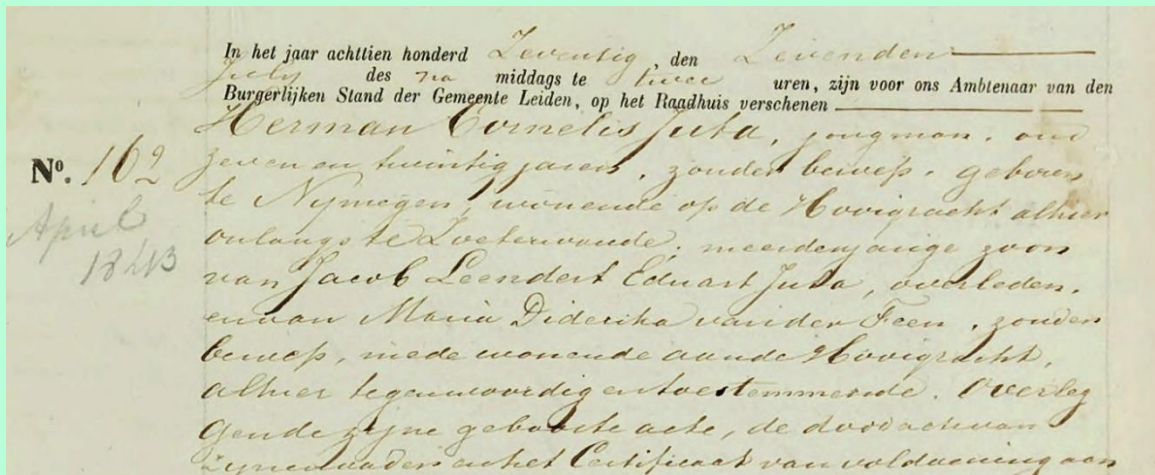 In het jaar achttien honderd Zeventig, den Zevenden
July des na middags te twee uren, zijn voor ons Ambtenaar van den
Burgerlijken Stand der Gemeente Leiden, op het Raadhuis verschenen
Herman Cornelis Juta, jongman, oud
No. 162
zeven en twintig jaren, zonder beroep, geboren
te Nymegen, wonende op de Hooigracht alhier
April
onlangs te Zoeterwoude, meerderjarige zoon
1843
van Jacob Leendert Eduart Juta, overleden,
en van Maria Diderika van der Feen, zonder
beroep, mede wonende aan de Hooigracht,
alhier tegenwoordig en toestemmende. Overleg
gende zijne geboorte acte, de dood acte van
zijnen vader en het Certificaat van voldoening aan